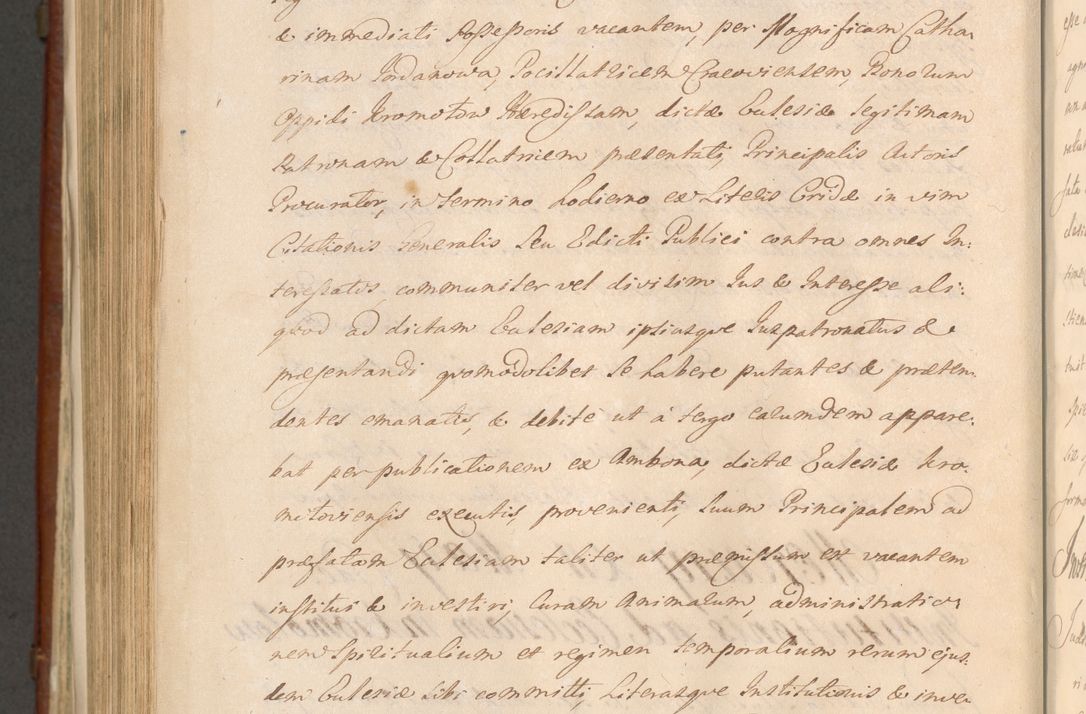 & immediati Possessoris vacantem, per Magnificam Catha,
rinam Jordanowa, Pocillatricem Cracoviensem, Bonorum
Oppidi Kromołow Hæredissam, dictæ Eclesiæ legitimam
Patronam & Collatricem præsentati, Principalis Actoris
Procurator, in termino hodierno ex Literis Cridæ in vim
Citationis Generalis seu Edicti Publici contra omnes In:
teressatos, communiter vel divisim Jus & Interesse ali:
quod ad dictam Eclesiam ipsiusque Juspatronatus &
præsentandi quomodolibet se habere putantes & præten,
dentes emanatis, & debite ut à tergo earumdem appare:
bat per publicationem ex Ambona, dictæ Eclesiæ Kro,
mołoviensis executis, provenienti, suum Principalem ad
præfatam Eclesiam taliter ut præmissum est vacantem
institui & investiri, Curam Animarum, administratio,
nem Spiritualium et regimen temporalium rerum ejus,
dem Eclesiæ sibi committi, Literasque Institutionis & inve,